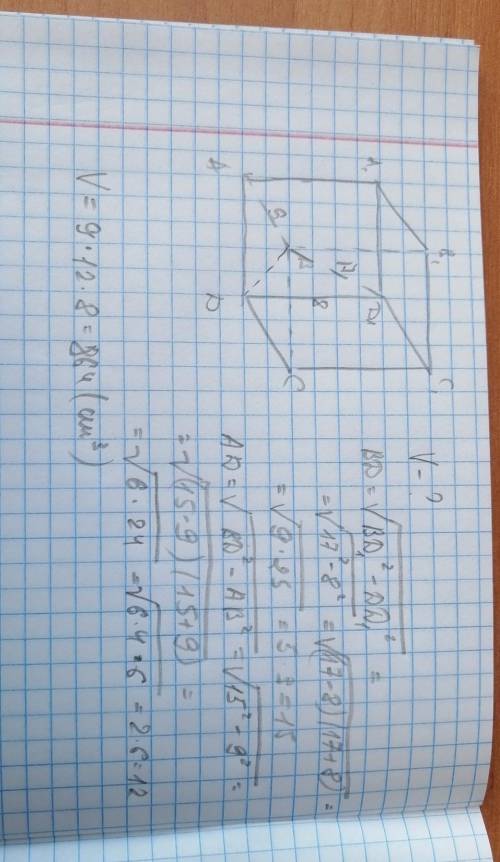 A₁ B₁ C₁ D₁
A B C D
9 17 8
V - ?
BD = √BD₁² - DD₁² =
= √17² - 8² = √(17-8)(17+8) =
= √9·25 = 5·3 = 15
AD = √BD² - AB² = √15² - 9² =
= √(15-9)(15+9) =
= √6·24 = √6·4·6 = 2·6 = 12
V = 9·12·8 = 864 (см³)